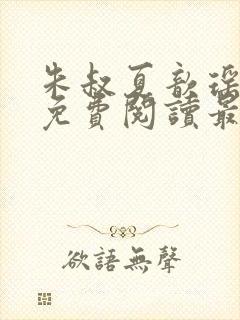 朱叔夏歆瑶
免費閱讀最
欲語無聲